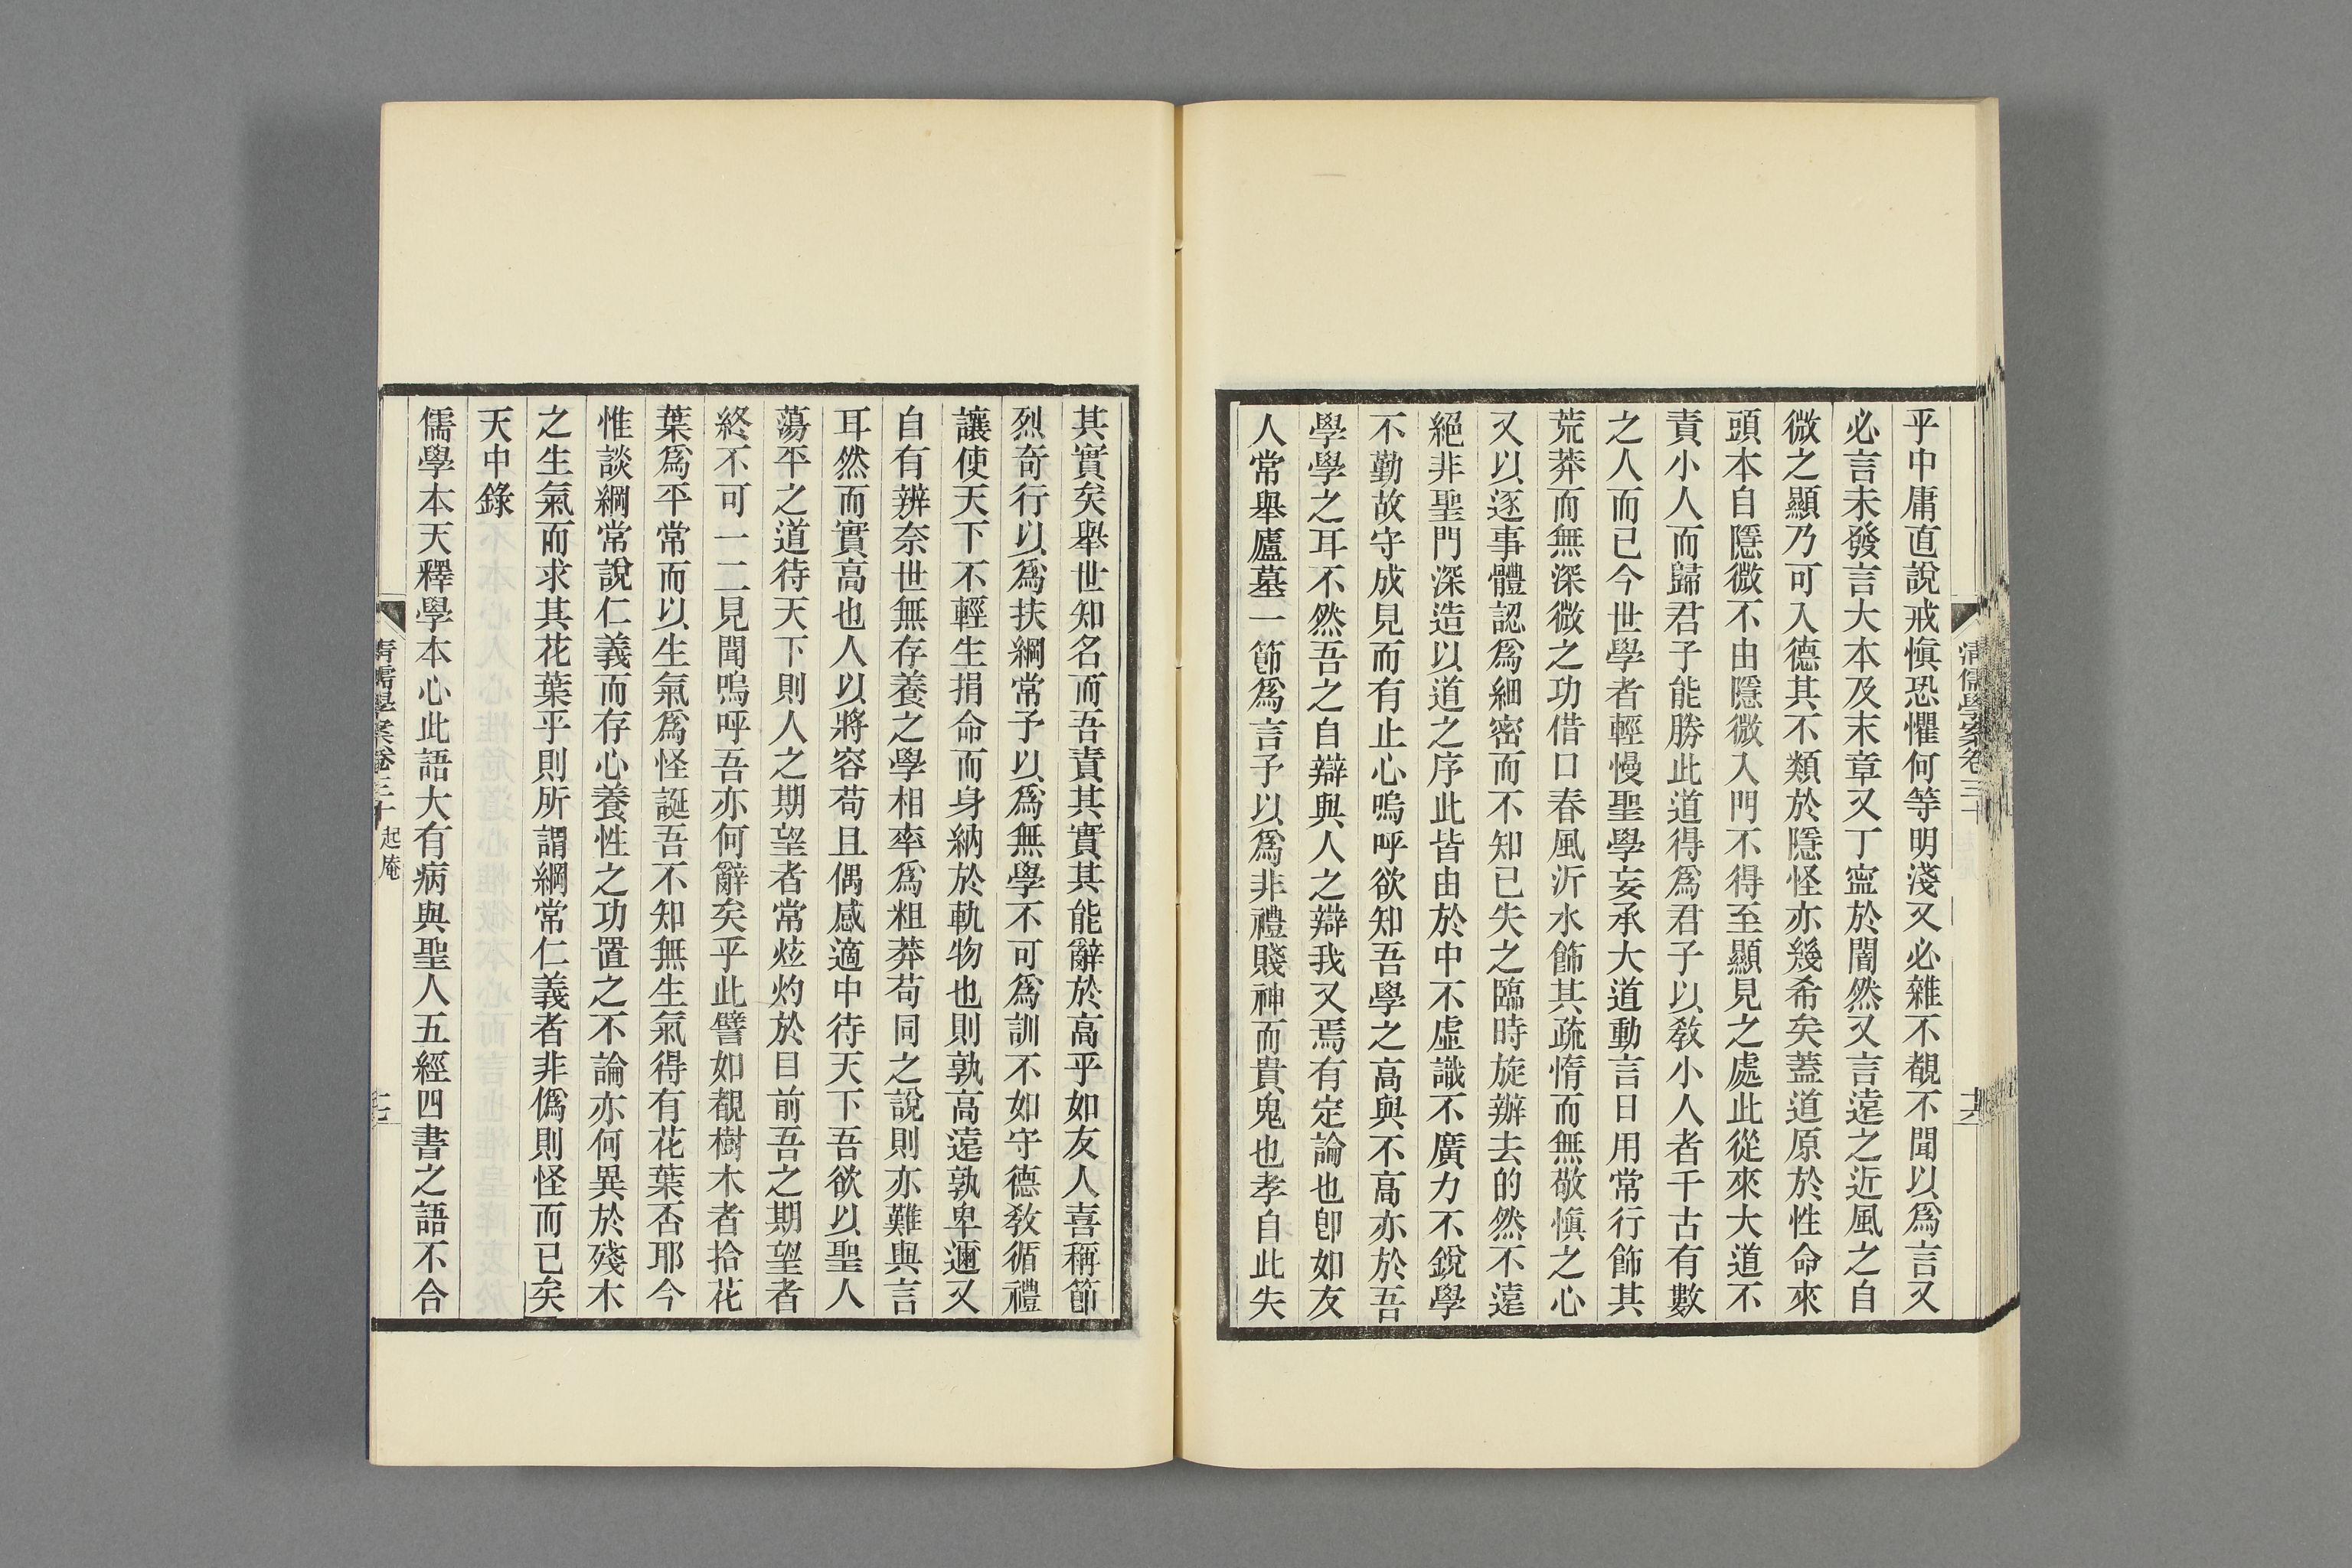 乎中庸直說戒愼恐懼何等明淺又必雜不覩不聞以爲言又
必言未發言大本及末章又丁寍於闇然又言遠之近風之自
微之顯乃可入德其不類於隱怪亦幾希矣蓋道原於性命來
頭本自隱微不由隱微入門不得至顯見之處此從來大道不
責小人而歸君子能勝此道得爲君子以敎小人者千古有數
之人而已今世學者輕慢聖學妄承大道動言日用常行飾其
荒莽而無深微之功借口春風沂水飾其疏惰而無敬愼之心
又以逐事體認爲細密而不知已失之臨時旋辦去的然不遠
絕非聖門深造以道之序此皆由於中不虛識不廣力不銳學
不勤故守成見而有止心嗚呼欲知吾學之高與不高亦於吾
學學之耳不然吾之自辯與人之辯我又焉有定論也卽如友
人常舉廬墓一節爲言予以爲非禮賤神而貴鬼也孝自此失
其實矣舉世知名而吾責其實其能辭於高乎如友人喜稱節
烈奇行以爲扶綱常予以爲無學不可爲訓不如守德敎循禮
讓使天下不輕生捐命而身納於軌物也則孰高遠孰卑邇又
自有辨奈世無存養之學相率爲粗莽苟同之說則亦難與言
耳然而實高也人以將容苟且偶感適中待天下吾欲以聖人
蕩平之道待天下則人之期望者常炫灼於目前吾之期望者
終不可一二見聞嗚呼吾亦何辭矣乎此譬如覩樹木者拾花
葉爲平常而以生氣爲怪誕吾不知無生氣得有花葉否耶今
惟談綱常說仁義而存心養性之功置之不論亦何異於殘木
之生氣而求其花葉乎則所謂綱常仁義者非僞則怪而已矣
天中錄
儒學本天釋學本心此語大有病與聖人五經四書之語不合
清儒學案卷三十
起庵